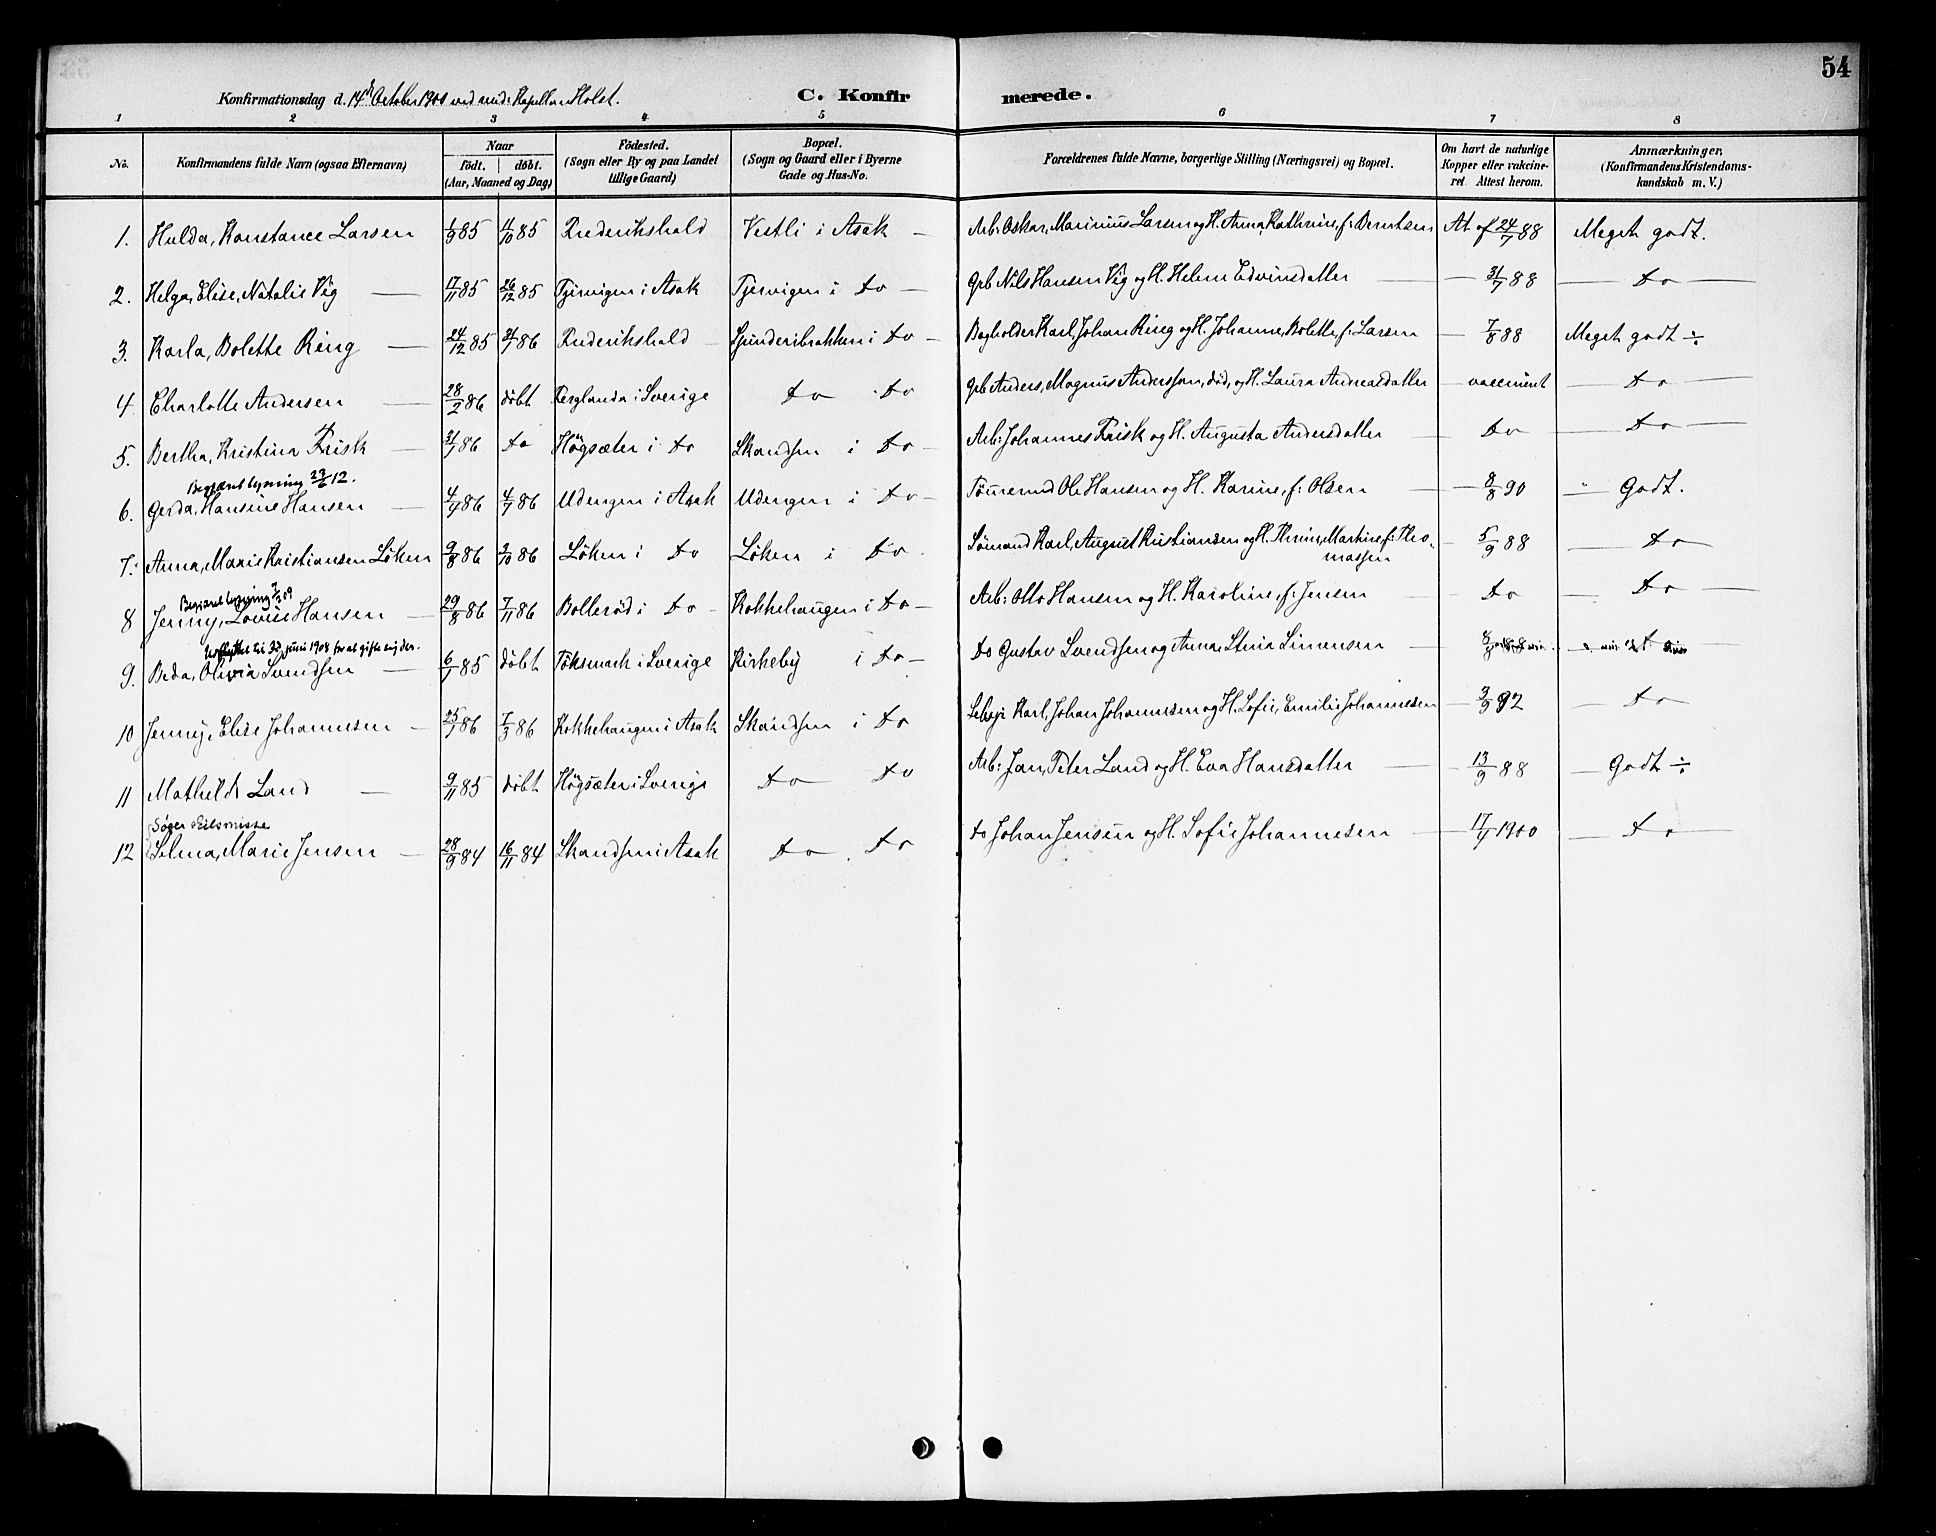 54
Konfirmationsdag d. 14de October 1900 ved Kapellan Holst.
C. Konfirmerede.
1 2 3 4 5 6 7 8
No. | Konfirmandens fulde Navn (ogsaa Efternavn) | Naar födt. döbt. (Aar, Maaned og Dag) | Födested. (Sogn eller By og paa Landet tillige Gaard) | Bopæl. (Sogn og Gaard eller i Byerne Gade og Hus-No. | Forældrenes fulde Navne, borgerlige Stilling (Næringsvei) og Bopæl. | Om havt de naturlige Kopper eller vakcineret. Attest herom. | Anmærkninger, (Konfirmandens Kristendomskundskab m. V.)
1. Hulda, Konstance Larsen | 1/9 85 | 4/10 85 | Frederikshald | Vestli i Asak | Arb: Oskar, Marinius Larsen og H. Anna, Kathrine, f: Berntsen | At. af 24/7 88 | Meget godt.
2. Helga, Elise, Natalie Vig | 17/11 85 | 26/12 85 | Tjervigen i Asak | Tjervigen i do | Grb Nils Hansen Vig og H. Helene Edvinsdatter | 31/7 88 | do
3. Karla, Bolette Ring | 24/12 85 | 86 | Frederikshald | i do | Bogholder Karl, Johan Ring og H. Johanne, Bolette, f: Larsen | 7/8 88 | Meget godt ÷
4 Charlotte Andersen | 28/2 86 | döbt | Ferglanda i Sverige | do do | Grb Anders, Magnus Andersson, död, og H. Laura Andreasdatter | vaccineret | do
5. Bertha, Kristina Frisk | 86 | do | Högsæter i do | Skandsen i do | Arb: Johannes Frisk og H. Augusta Andersdatter | do | do
Begjæret lysning 23/6 12.
6. Gerda, Hansine Hansen | 4/7 86 | 4/7 86 | Udengen i Asak | Udengen i do | Tömmermd Ole Hansen og H. Karine, f: Olsen | 8/8 90 | Godt.
7. Anna, Marie Kristiansen Löken | 9/8 86 | 3/10 86 | Löken i do | Löken i do | Sömand Karl, August Kristiansen og H. Thrine, Martine f: Thomassen | 5/9 88 | do
Begjæret lysning 09
8 Jenny, Lovise Hansen | 29/8 86 | 7/11 86 | Bolleröd i do | Kokkehaugen i do | Arb: Otto Hansen og H. Karoline, f: Jensen | do | do
juni 1908 for at gifte sig der.
9. Beda, Olivia Svendsen | 6/7 85 | döbt | Töksmark i Sverige | Kirkeby i do | do Gustav Svendsen og Anna, Stina Simensen
10 Jenny, Elise Johannesen | 25/7 86 | 7/3 86 | Kokkehaugen i Asak | Skandsen i do | Karl, Johan Johannesen og H. Sofie, Emilie Johannesen | 3/9 92 | do
11 Mathilde Land | 9/11 85 | döbt | Högsæter i Sverige | do do | Arb: Jan, Peter Land og H. Eva Hansdatter | 13/9 88 | Godt ÷
12 Selma, Marie Jensen | 28/9 84 | 16/11 84 | Skandsen i Asak | do do | do Johan Jensen og H. Sofie Johannesen | 1900 | do